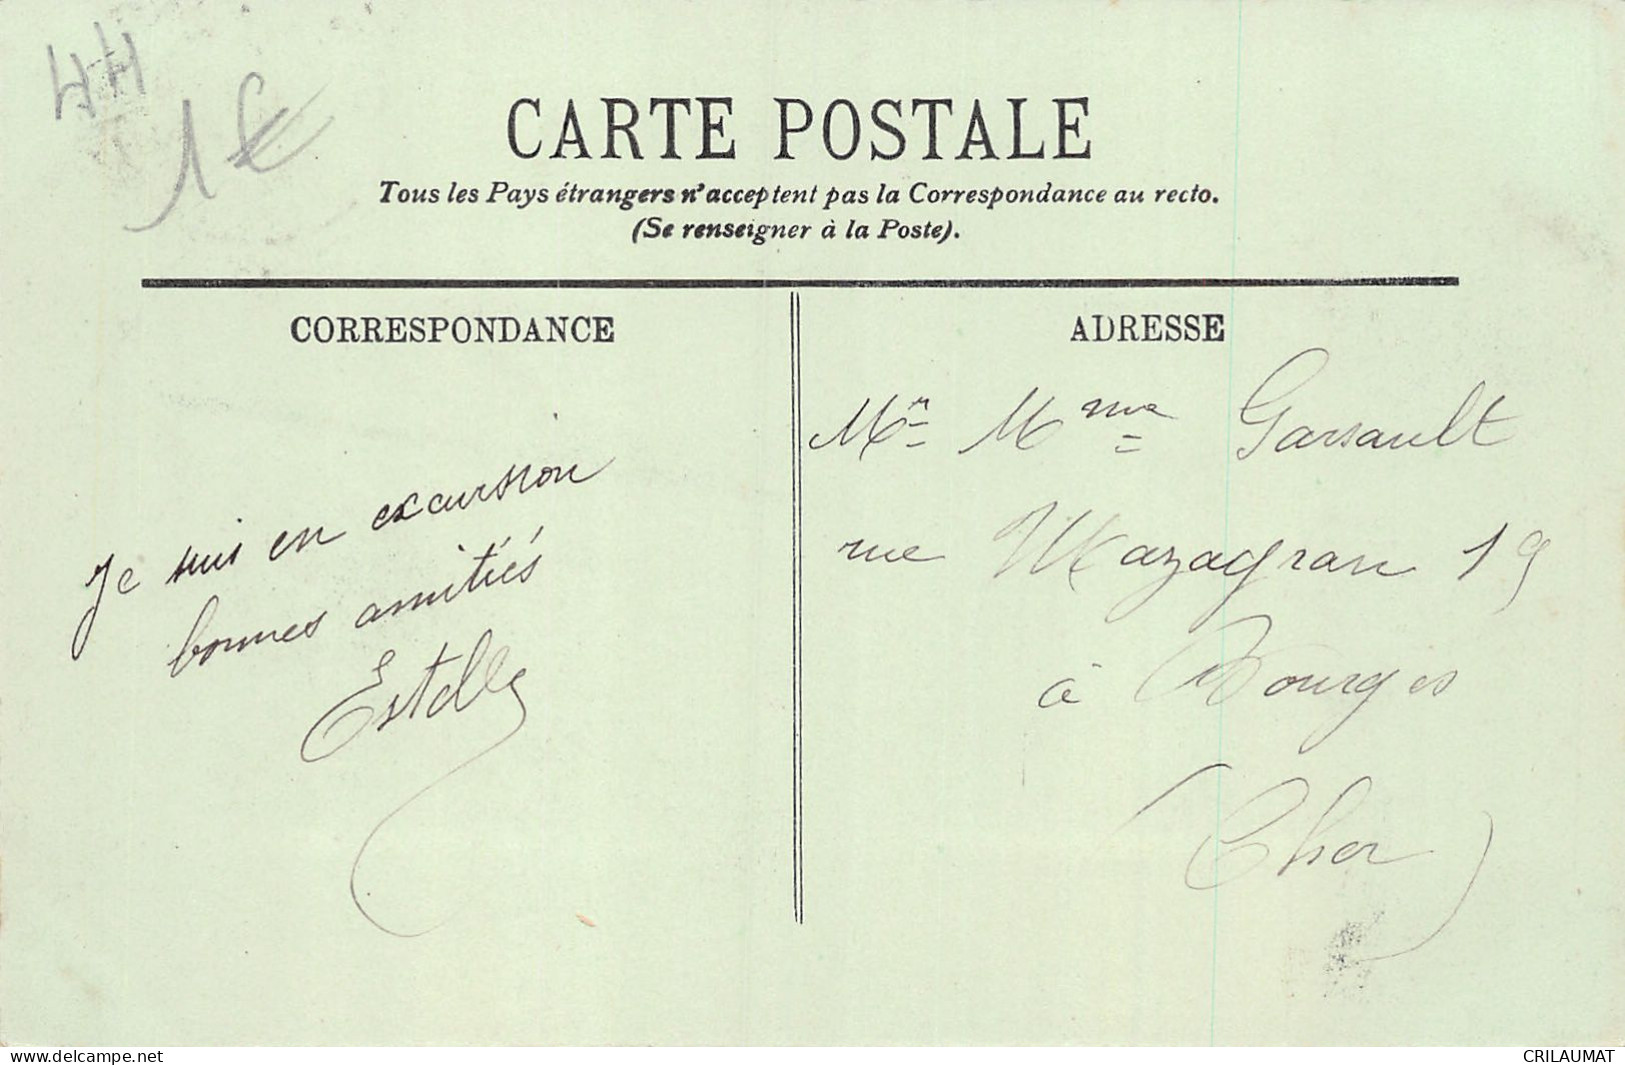 44
1€
CARTE POSTALE
Tous les Pays étrangers n'acceptent pas la Correspondance au recto.
(Se renseigner à la Poste).
CORRESPONDANCE
Je suis en excursion
bonnes amitiés
Estelle
ADRESSE
Mr Mme Garsault
rue Mazagran 19
à Bourges
(Cher)
www.delcampe.net
CRILAUMAT